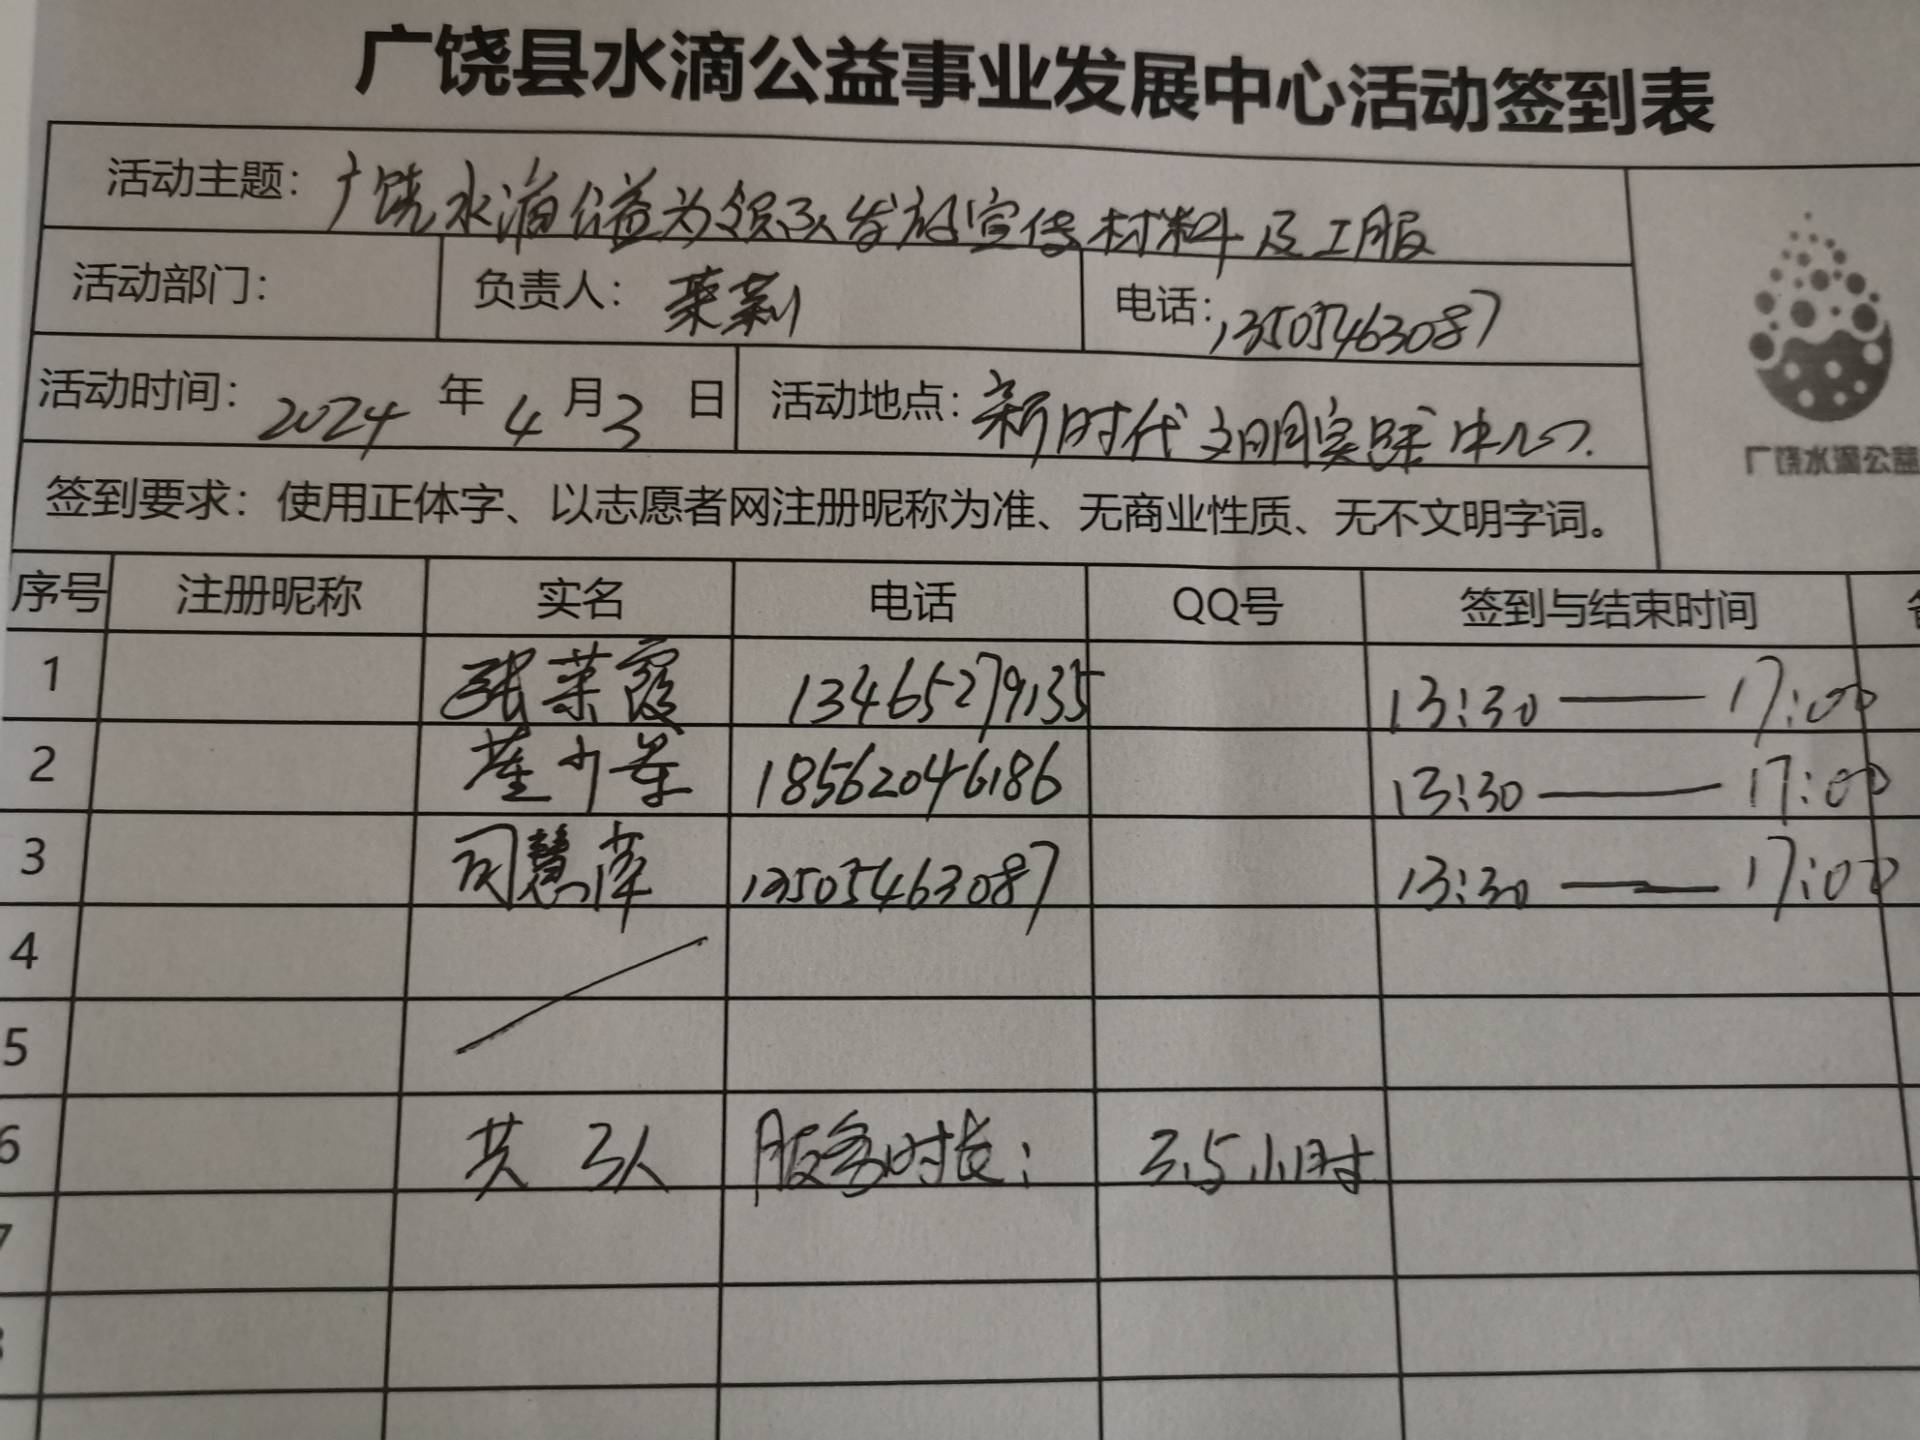 广饶县水滴公益事业发展中心活动签到表
活动主题：广饶水滴公益为领队发放宣传材料及工服
活动部门： 负责人：茉莉 电话：13505463087
活动时间：2024年4月3日 活动地点：新时代文明实践中心.
签到要求：使用正体字、以志愿者网注册昵称为准、无商业性质、无不文明字词。
广饶水滴公益
序号 注册昵称 实名 电话 QQ号 签到与结束时间
1 张荣霞 13465279135 13:30——17:00
2 18562046186 13:30——17:00
3 司慧萍 13505463087 13:30——17:00
4
5
6 共3人 服务时长： 3.5小时
7